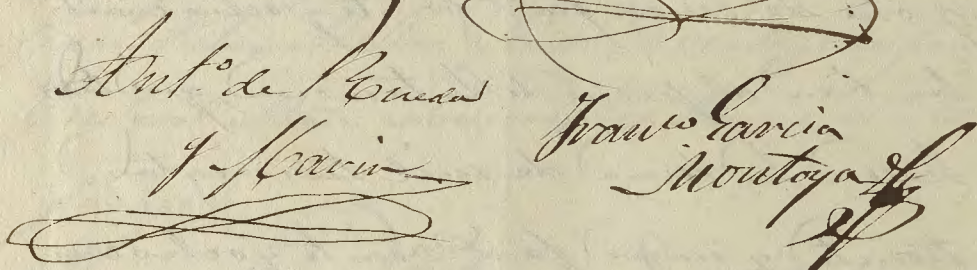 Ant.º de Rueda
y Marin
Fran.co Garcia
Montoya